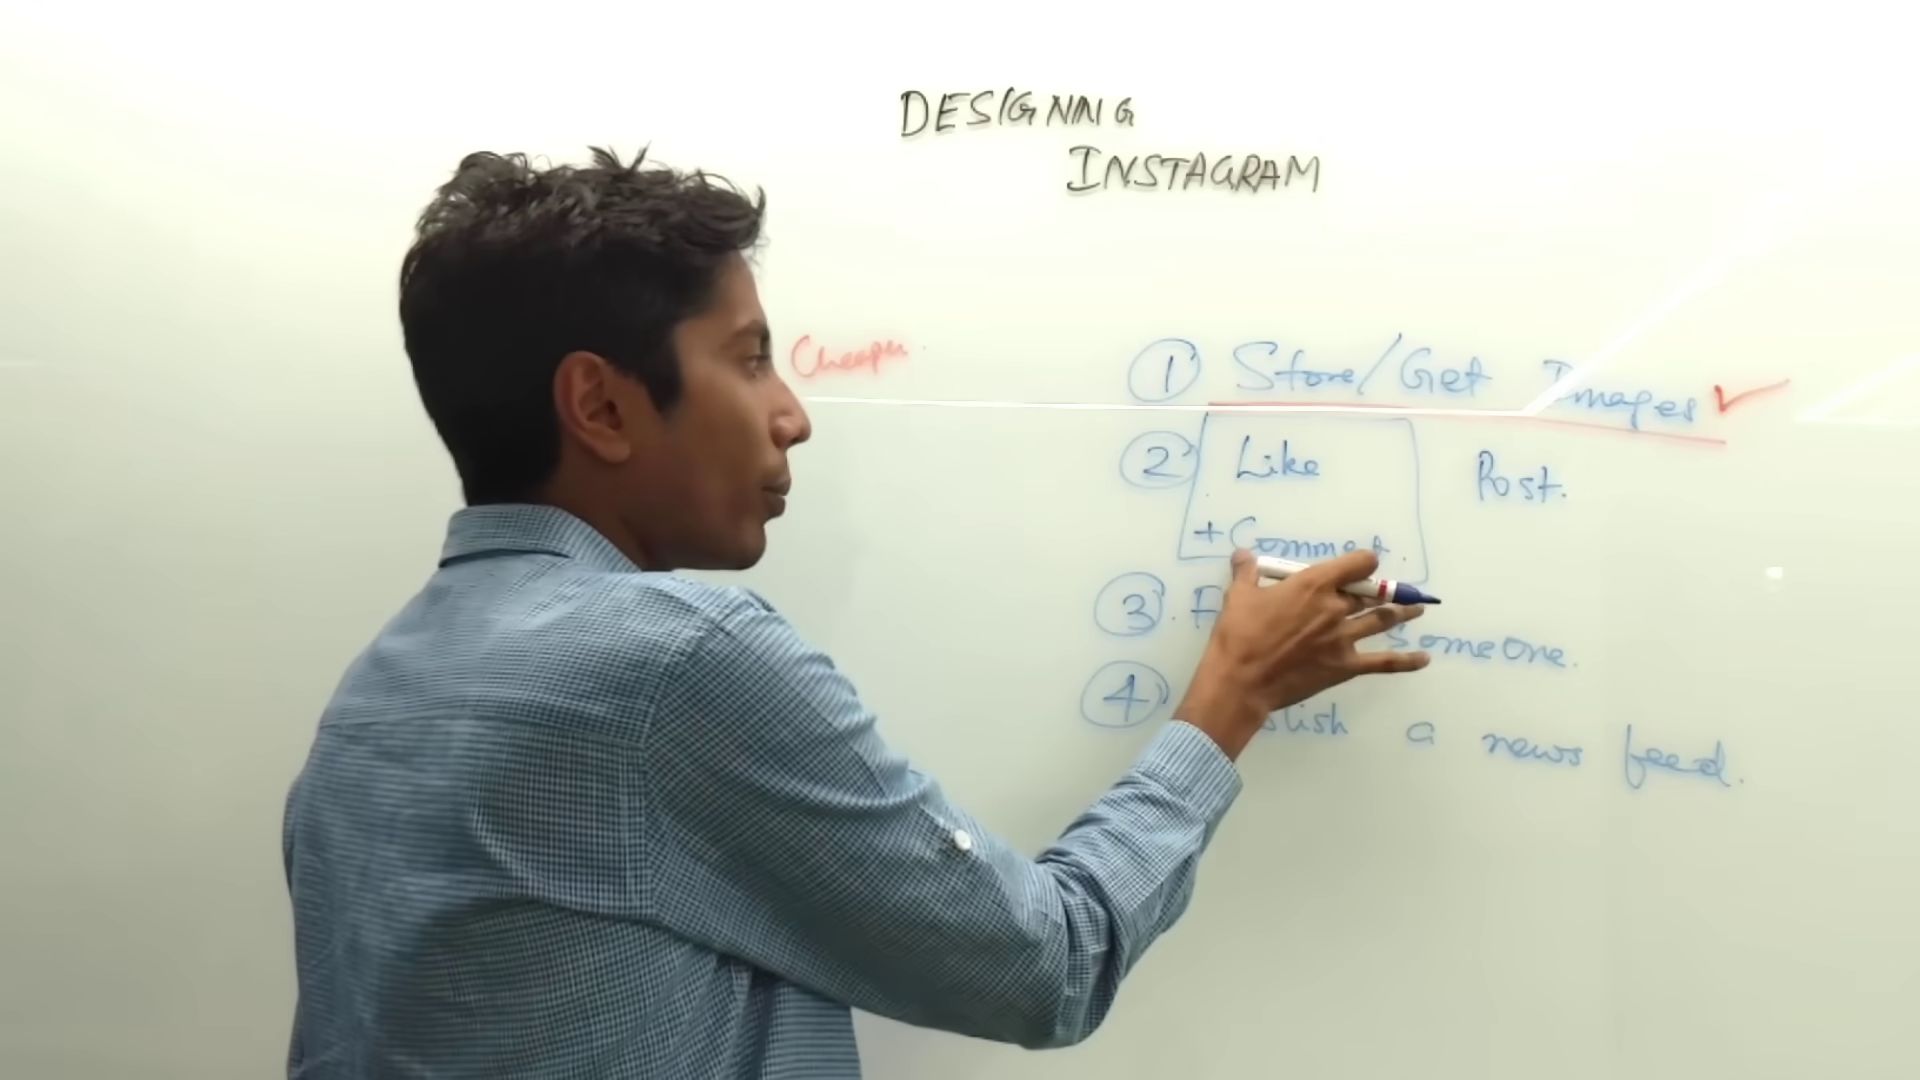 DESIGNING
INSTAGRAM
Cheaper
① Store/Get Images ✓
② Like Post.
+ Comment.
③. Someone.
④ a news feed.